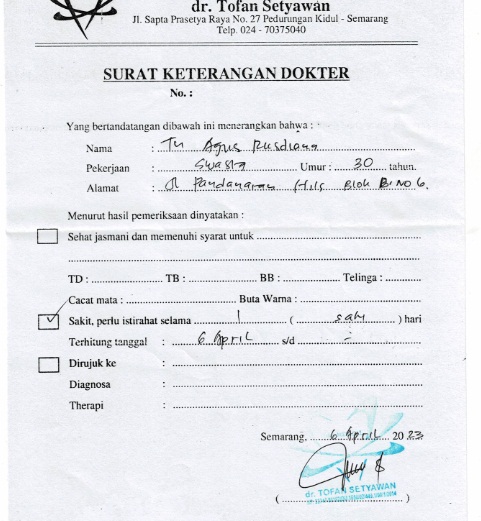 dr. Tofan Setyawan
Jl. Sapta Prasetya Raya No. 27 Pedurungan Kidul - Semarang
Telp. 024 - 70375040
SURAT KETERANGAN DOKTER
No. :
Yang bertandatangan dibawah ini menerangkan bahwa :
Nama : Tn Agus Rusdiana
Pekerjaan : Swasta Umur : 30 tahun.
Alamat : Jl Pandanaran Hills Blok B NO 6.
Menurut hasil pemeriksaan dinyatakan :
Sehat jasmani dan memenuhi syarat untuk
TD : TB : BB : Telinga :
Cacat mata : Buta Warna :
Sakit, perlu istirahat selama 1 ( satu ) hari
Terhitung tanggal : 6 April s/d -
Dirujuk ke :
Diagnosa :
Therapi :
Semarang, 6 April 2023
dr. TOFAN SETYAWAN
( )